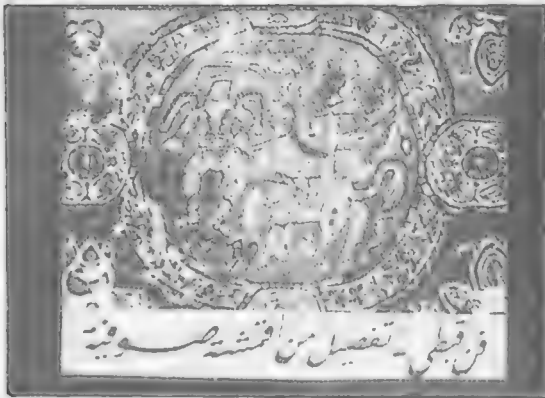 فن قبطى - تفصيل من اقمشة صوفية